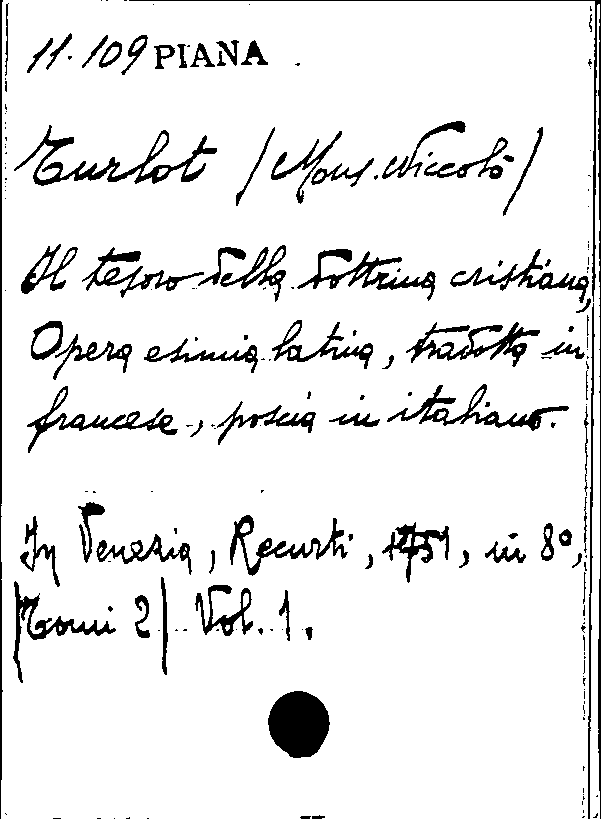 11.109 PIANA
Turlot (Mons. Niccolò)
Il tesoro della dottrina cristiana,
Opera esimia latina, tradotta in
francese, poscia in italiano.
In Venezia, Recurti, 1751, in 8°,
(Tomi 2) Vol. 1.